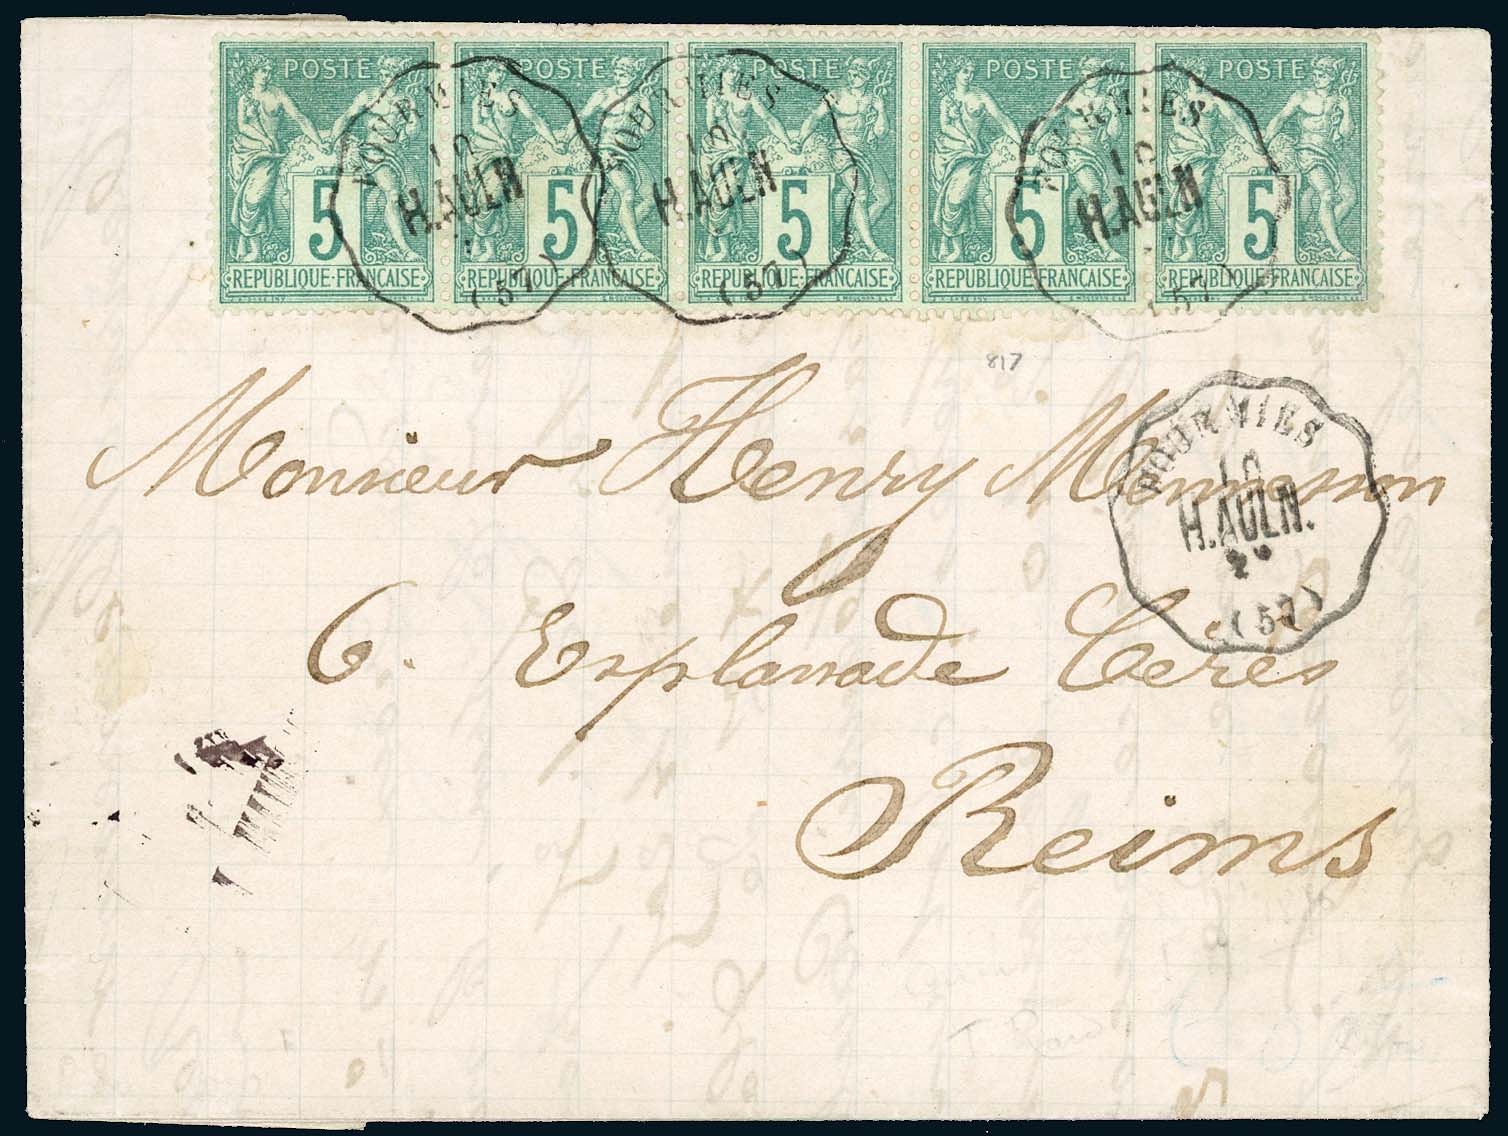 POSTE POSTE POSTE POSTE POSTE
5 5 5 5 5
REPUBLIQUE·FRANÇAISE REPUBLIQUE·FRANÇAISE REPUBLIQUE·FRANÇAISE REPUBLIQUE·FRANÇAISE REPUBLIQUE·FRANÇAISE
FOURMIES
H.AULN
(57)
FOURMIES
H.AULN
(57)
FOURMIES
H.AULN
57)
817
Monsieur Henry Mennesson
FOURMIES
H.AULN.
(57)
6. Esplanade Ceres
Reims